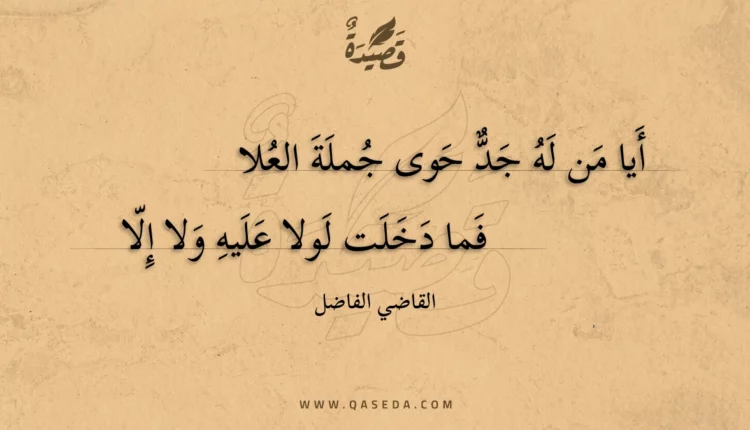 قَصِيْدَةٌ
أَيا مَن لَهُ جَدٌّ حَوى جُملَةَ العُلا
فَما دَخَلَت لَولا عَلَيهِ وَلا إِلّا
القاضي الفاضل
WWW.QASEDA.COM